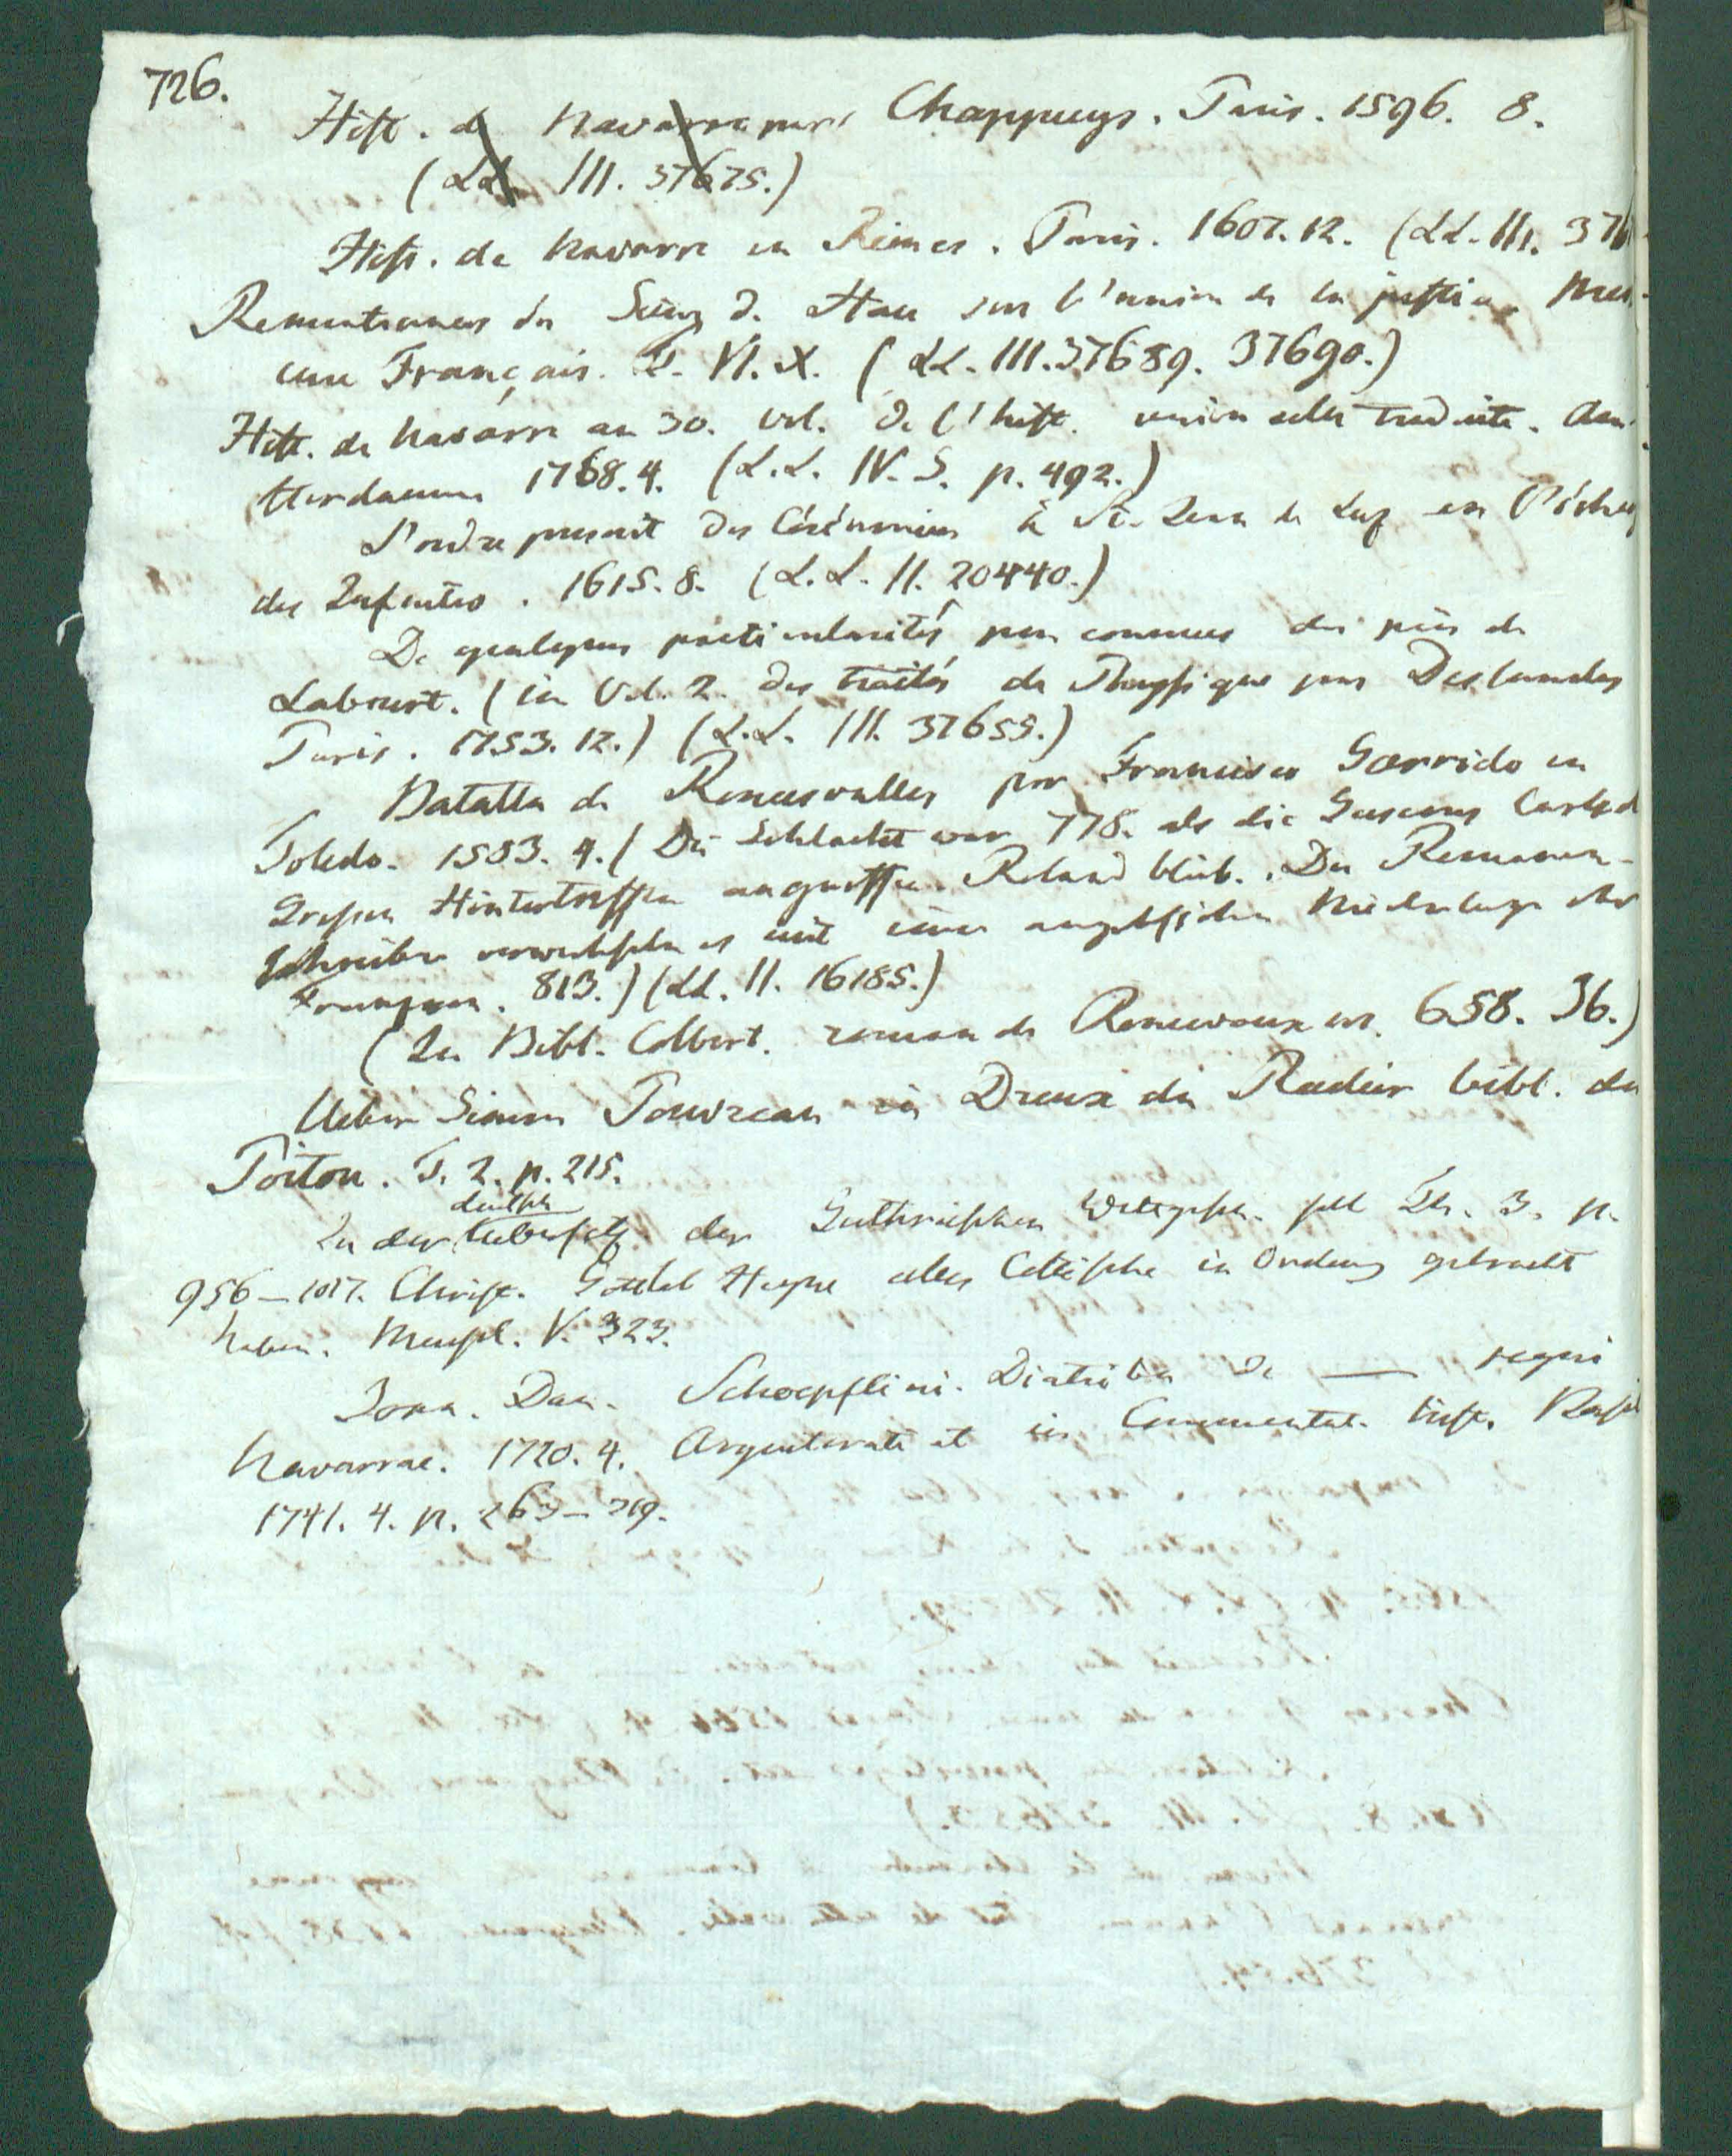 726.
Hist. de Navarre par Chappuys. Paris. 1596. 8.
(LL. III. 37675.)
Hist. de Navarre en Rimes. Paris. 1607. 12. (LL. III. 376
Remontrances du Sieur d. sur l'union de la justice. Mer-
cure Français. T. VI. X. (LL. III. 37689. 37690.)
Hist. de Navarre au 30. vol. de l'hist. univers. traduite. Am-
sterdamm 1768. 4. (L.L. IV. S. p. 492.)
L'ordre prescrit des Cérémonies à St. Jean de Luz en l'échange
des Infantes. 1615. 8. (L.L. II. 20440.)
De quelques particularités peu connues du païs de
Labourt. (in Vol. 2. des traités de Physique par Deslandes
Paris. 1753. 12.) (L.L. III. 37655.)
Batalla de Roncesvalles por Francisco Garrido en
Toledo. 1583. 4. (Die Schlacht war 778. als die Gascons Carls d
Grossen Hintertreffen angriffen. Roland blieb. Die Romanen-
schreiber verwechseln es mit einer angeblichen Niederlage der
Franzosen. 813.) (LL. II. 16185.)
(In Bibl. Colbert. roman de Roncevaux nr. 658. 36.)
Ueber Simon Touvreau in Dreux du Radier bibl. du
Poitou. T. 2. p. 215.
deutsch
In der Uebersetz. der Guthrieschen Weltgesch. soll Th. 3. p.
956-1017. Christ. Gottlob Heyne alles Celtische in Ordnung gebracht
haben. Meusel. V. 323.
Joan. Dan. Schoepflini. Diatriba de — regni
Navarrae. 1720. 4. Argentorati et in Commentat. hist. Basil
1741. 4. p. 263-